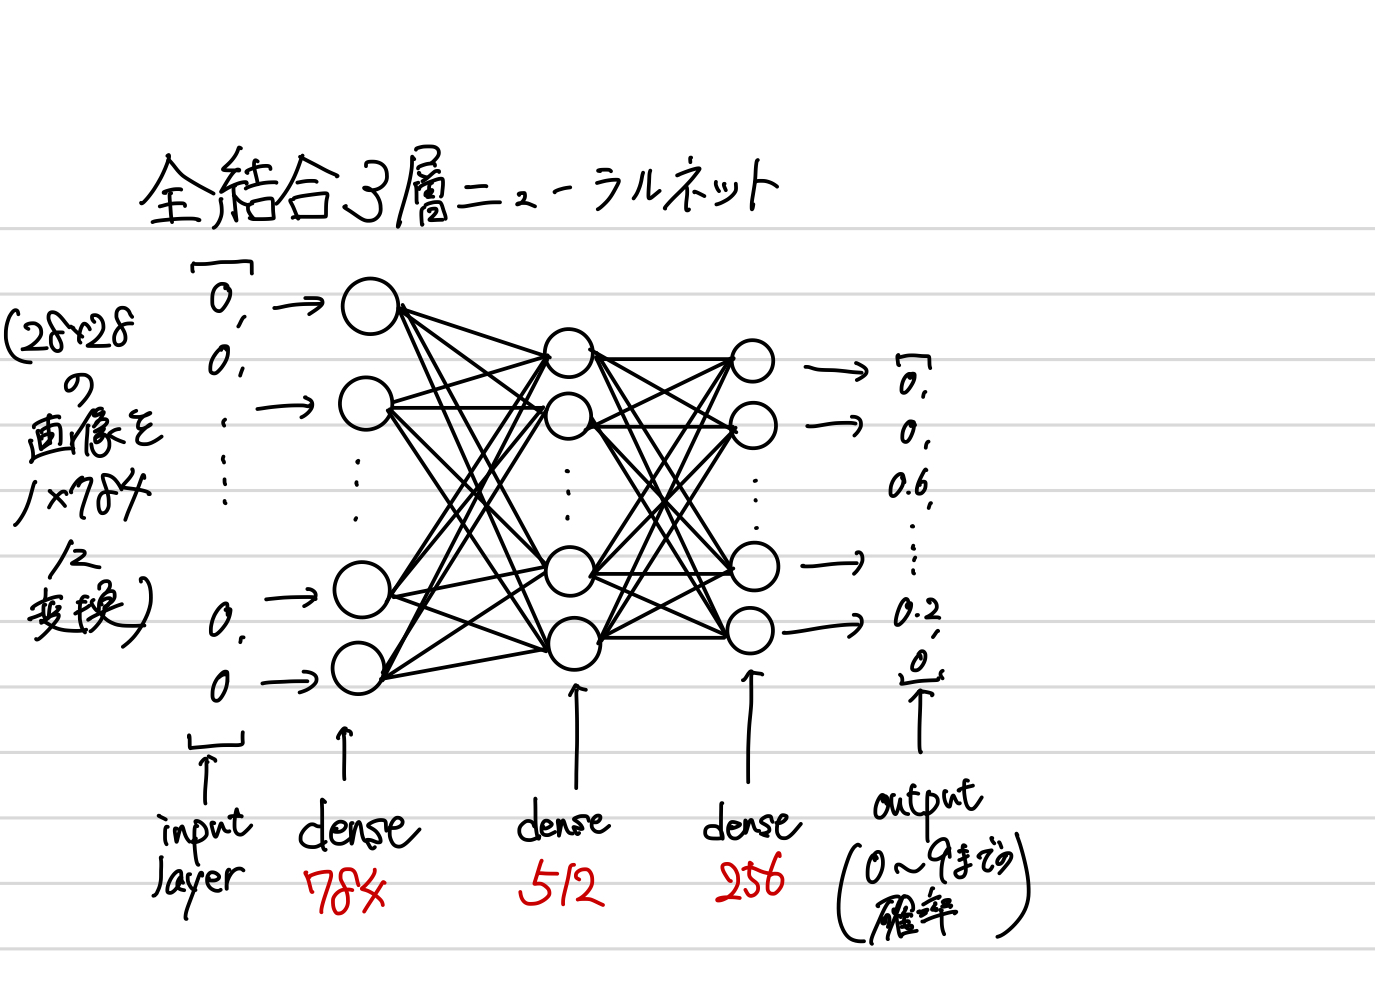 全結合3層ニューラルネット
(28×28
の
画像を
1×784
に
変換)
0,
0,
0,
0
0,
0,
0.6,
0.2,
0
input
layer
dense
784
dense
512
dense
256
output
(0〜9までの
確率)